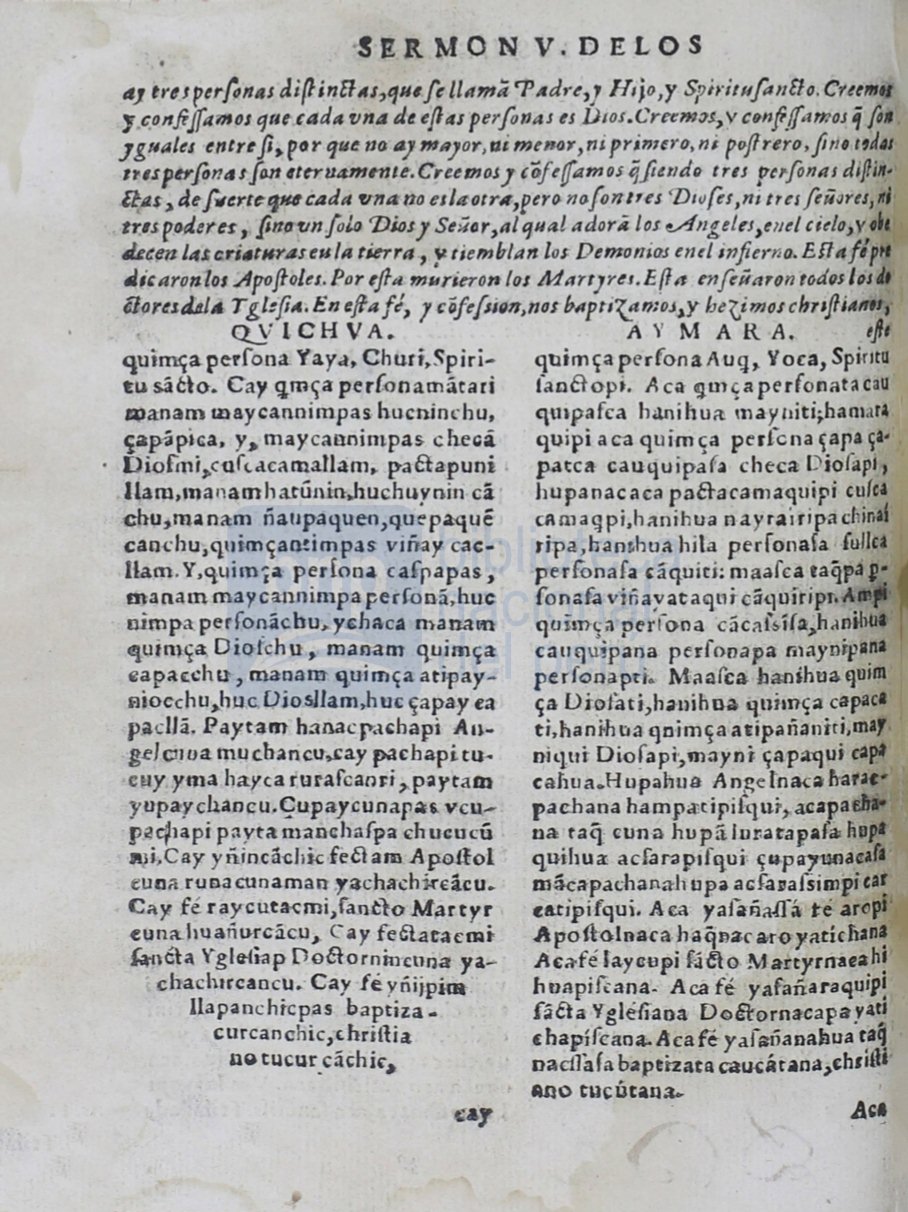 SERMON V. DELOS
ay tres perſonas diſtinctas, que ſe llamã Padre, y Hijo, y Spirituſancto. Creemos
y confeſſamos que cada vna de eſtas perſonas es Dios. Creemos, y confeſſamos q̃ ſon
yguales entre ſi, por que no ay mayor, ni menor, ni primero, ni poſtrero, ſino todas
tres perſonas ſon eternamente. Creemos y cõfeſſamos q̃ ſiendo tres perſonas diſtin-
ctas, de ſuerte que cada vna no es la otra, pero no ſon tres Dioſes, ni tres ſeñores, ni
tres poderes, ſino vn ſolo Dios y Señor, al qual adorã los Angeles, enel cielo, y obe
decen las criaturas eu la tierra, y tiemblan los Demonios enel infierno. Eſta fé pre
dicaron los Apoſtoles. Por eſta murieron los Martyres. Eſta enſeñaron todos los do
ctores dela Ygleſia. En eſta fé, y cõfeſsion, nos baptizamos, y hezimos chriſtianos,
eſte
QVICHVA.
quimça perſona Yaya, Churi, Spiri-
tu sãcto. Cay qmça perſonamãtari
manam maycannimpas hucninchu,
çapãpica, y, maycannimpas checã
Dioſmi, cuſcacamallam, pactapuni
llam, manam hatũnin, huchuynin cã
chu, manam ñaupaquen, quepaquẽ
canchu, quimçantimpas viñay cac-
llam. Y, quimça perſona caſpapas,
manam maycannimpa perſonã, huc
nimpa perſonãchu, ychaca manam
quimça Dioſchu, manam quimça
capacchu, manam quimça atipay-
niocchu, huc Diosllam, huc çapay ca
pacllã. Paytam hanacpachapi An-
gelcuna muchancu, cay pachapi tu-
cuy yma hayca ruraſcanri, paytam
yupaychancu. Çupaycunapas vcu-
pachapi payta manchaſpa chucucũ
mi. Cay yñincãchic fectam Apoſtol
cuna runacunaman yachachircãcu.
Cay fé raycutacmi, ſancto Martyr
cuna huañurcãcu, Cay fectatacmi
ſancta Ygleſiap Doctornincuna ya-
chachircancu. Cay fé yñijpim
llapanchicpas baptiza-
curcanchic, chriſtia
no tucur cãchic,
cay
AYMARA.
quimça perſona Auq, Yoca, Spiritu
ſanctopi. Aca qmça perſonata cau
quipaſca hanihua mayniti, hamara
quipi aca quimça perſona çapa ça-
patca cauquipaſa checa Dioſapi,
hupanacaca pactacamaquipi cuſca
camaqpi, hanihua nayrairipa chinai
ripa, hanihua hila perſonaſa ſullca
perſonaſa cãquiti: maaſca taq̃pa p̱-
ſonaſa viñayataqui cãquiripi. Ampi
quimça perſona cãcaſsĩſa, hanihua
cauquipana perſonapa maynipana
perſonapti. Maaſca hanihua quim
ça Dioſati, hanihua quimça capaca
ti, hanihua qnimça atipañaniti, may
niqui Dioſapi, mayni çapaqui capa
cahua. Hupahua Angelnaca harac-
pachana hampatipiſqui, acapacha-
na taq̃ cuna hupã luratapaſa hupa
quihua acſarapiſqui çupayunacaſa
mãcapachanahupa acſaraſsimpi car
catipiſqui. Aca yaſañaſſá fé aropi
Apoſtolnaca haq̃nacaro yatichana
Acafé laycupi ſãcto Martyrnacahi
huapiſcana. Aca fé yaſañaraquipi
ſãcta Ygleſiana Doctornacapa yati
chapiſcana. Acafé yaſañanahua taq̃
nacſſaſa baptizata caucátana, chriſti
ano tucútana.
Aca